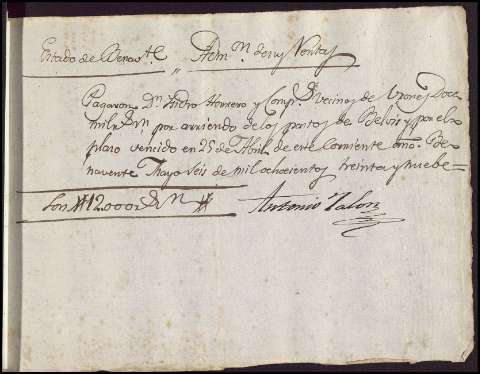 Estado de Benavte. „ Adm.n de sus Rentas
Pagaron Dn. Isidro Herrero y Compa. Vecinos de Doce
mil r.s Vn por arriendo de los pastos de Belvis y por el
plazo vencido en 25 de Abril de este Corriente año. Be-
navente Mayo seis de mil ochocientos treinta y nuebe=
Son # 12.000 r Vn #
Antonio Talon